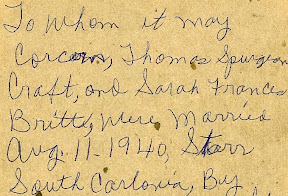 To whom it may
Corcern, Thomas Spurgeon
Craft, and Sarah Frances
Britt, were Married
Aug. 11-1940, Starr
South Carlonia, By